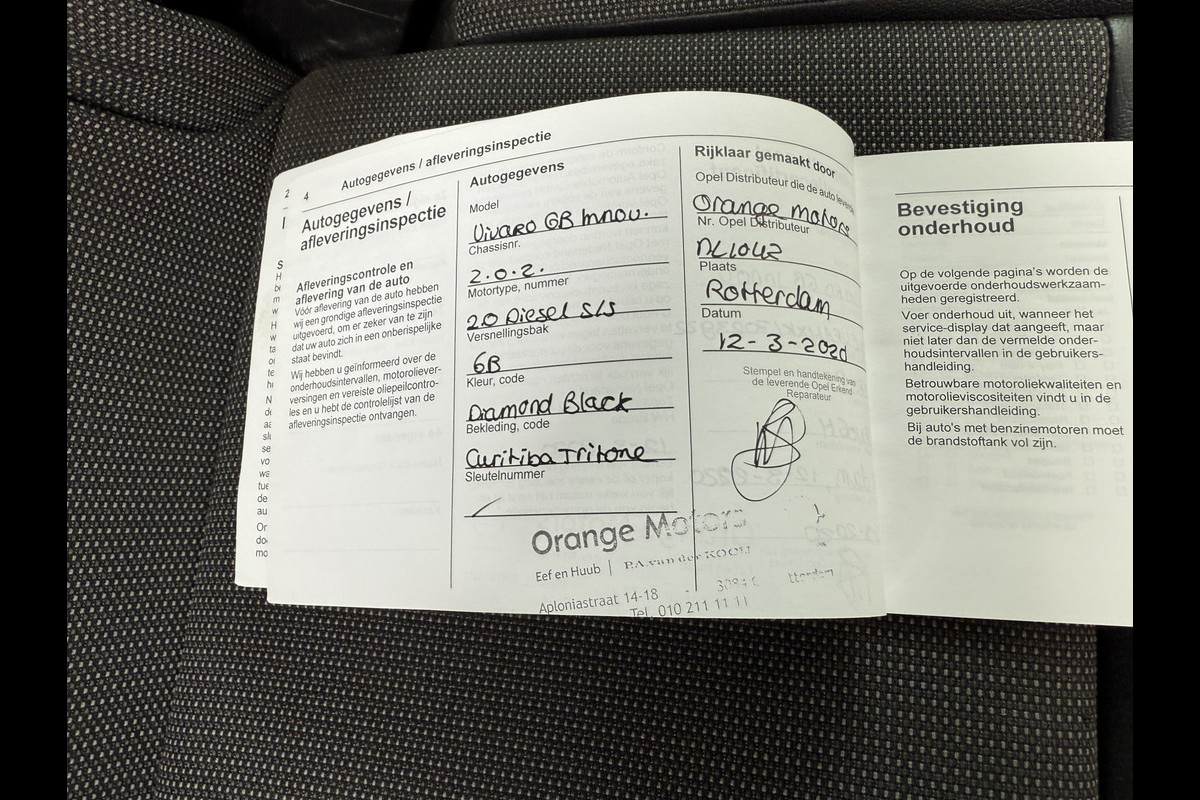 2
4
Autogegevens / afleveringsinspectie
Autogegevens /
afleveringsinspectie
Afleveringscontrole en
aflevering van de auto
Vóór aflevering van de auto hebben
wij een grondige afleveringsinspectie
uitgevoerd, om er zeker van te zijn
dat uw auto zich in een onberispelijke
staat bevindt.
Wij hebben u geïnformeerd over de
onderhoudsintervallen, motoroliever-
versingen en vereiste oliepeilcontro-
les en u hebt de controlelijst van de
afleveringsinspectie ontvangen.
Autogegevens
Model
Vivaro GB Innov.
Chassisnr.
2.0.2.
Motortype, nummer
2.0 Diesel S/S
Versnellingsbak
6B
Kleur, code
Diamond Black
Bekleding, code
Curitiba Tritone
Sleutelnummer
Rijklaar gemaakt door
Opel Distributeur die de auto leverde
Orange motors
Nr. Opel Distributeur
NL1042
Plaats
Rotterdam
Datum
12-3-2020
Stempel en handtekening van
de leverende Opel Erkend
Reparateur
Orange Motors
Eef en Huub | P.A. van der KOOIJ
Aploniastraat 14-18
Tel. 010 211 11 11
Bevestiging
onderhoud
Op de volgende pagina's worden de
uitgevoerde onderhoudswerkzaam-
heden geregistreerd.
Voer onderhoud uit, wanneer het
service-display dat aangeeft, maar
niet later dan de vermelde onder-
houdsintervallen in de gebruikers-
handleiding.
Betrouwbare motoroliekwaliteiten en
motorolieviscositeiten vindt u in de
gebruikershandleiding.
Bij auto's met benzinemotoren moet
de brandstoftank vol zijn.